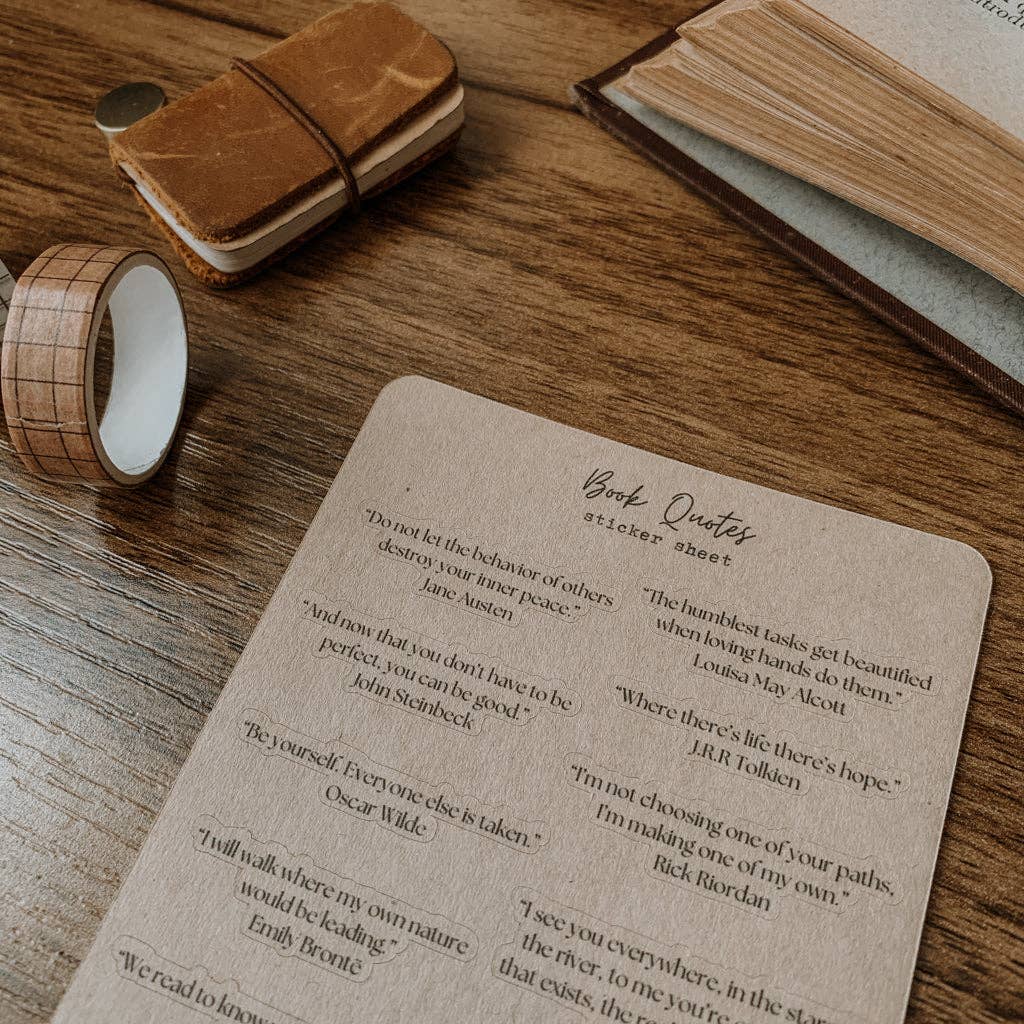 Book Quotes
sticker sheet
"Do not let the behavior of others
destroy your inner peace."
Jane Austen
"And now that you don't have to be
perfect, you can be good."
John Steinbeck
"Be yourself. Everyone else is taken."
Oscar Wilde
"I will walk where my own nature
would be leading."
Emily Brontē
"We read to know
"The humblest tasks get beautified
when loving hands do them."
Louisa May Alcott
"Where there's life there's hope."
J.R.R Tolkien
"I'm not choosing one of your paths,
I'm making one of my own."
Rick Riordan
"I see you everywhere, in the
the river, to me you're
that exists, the